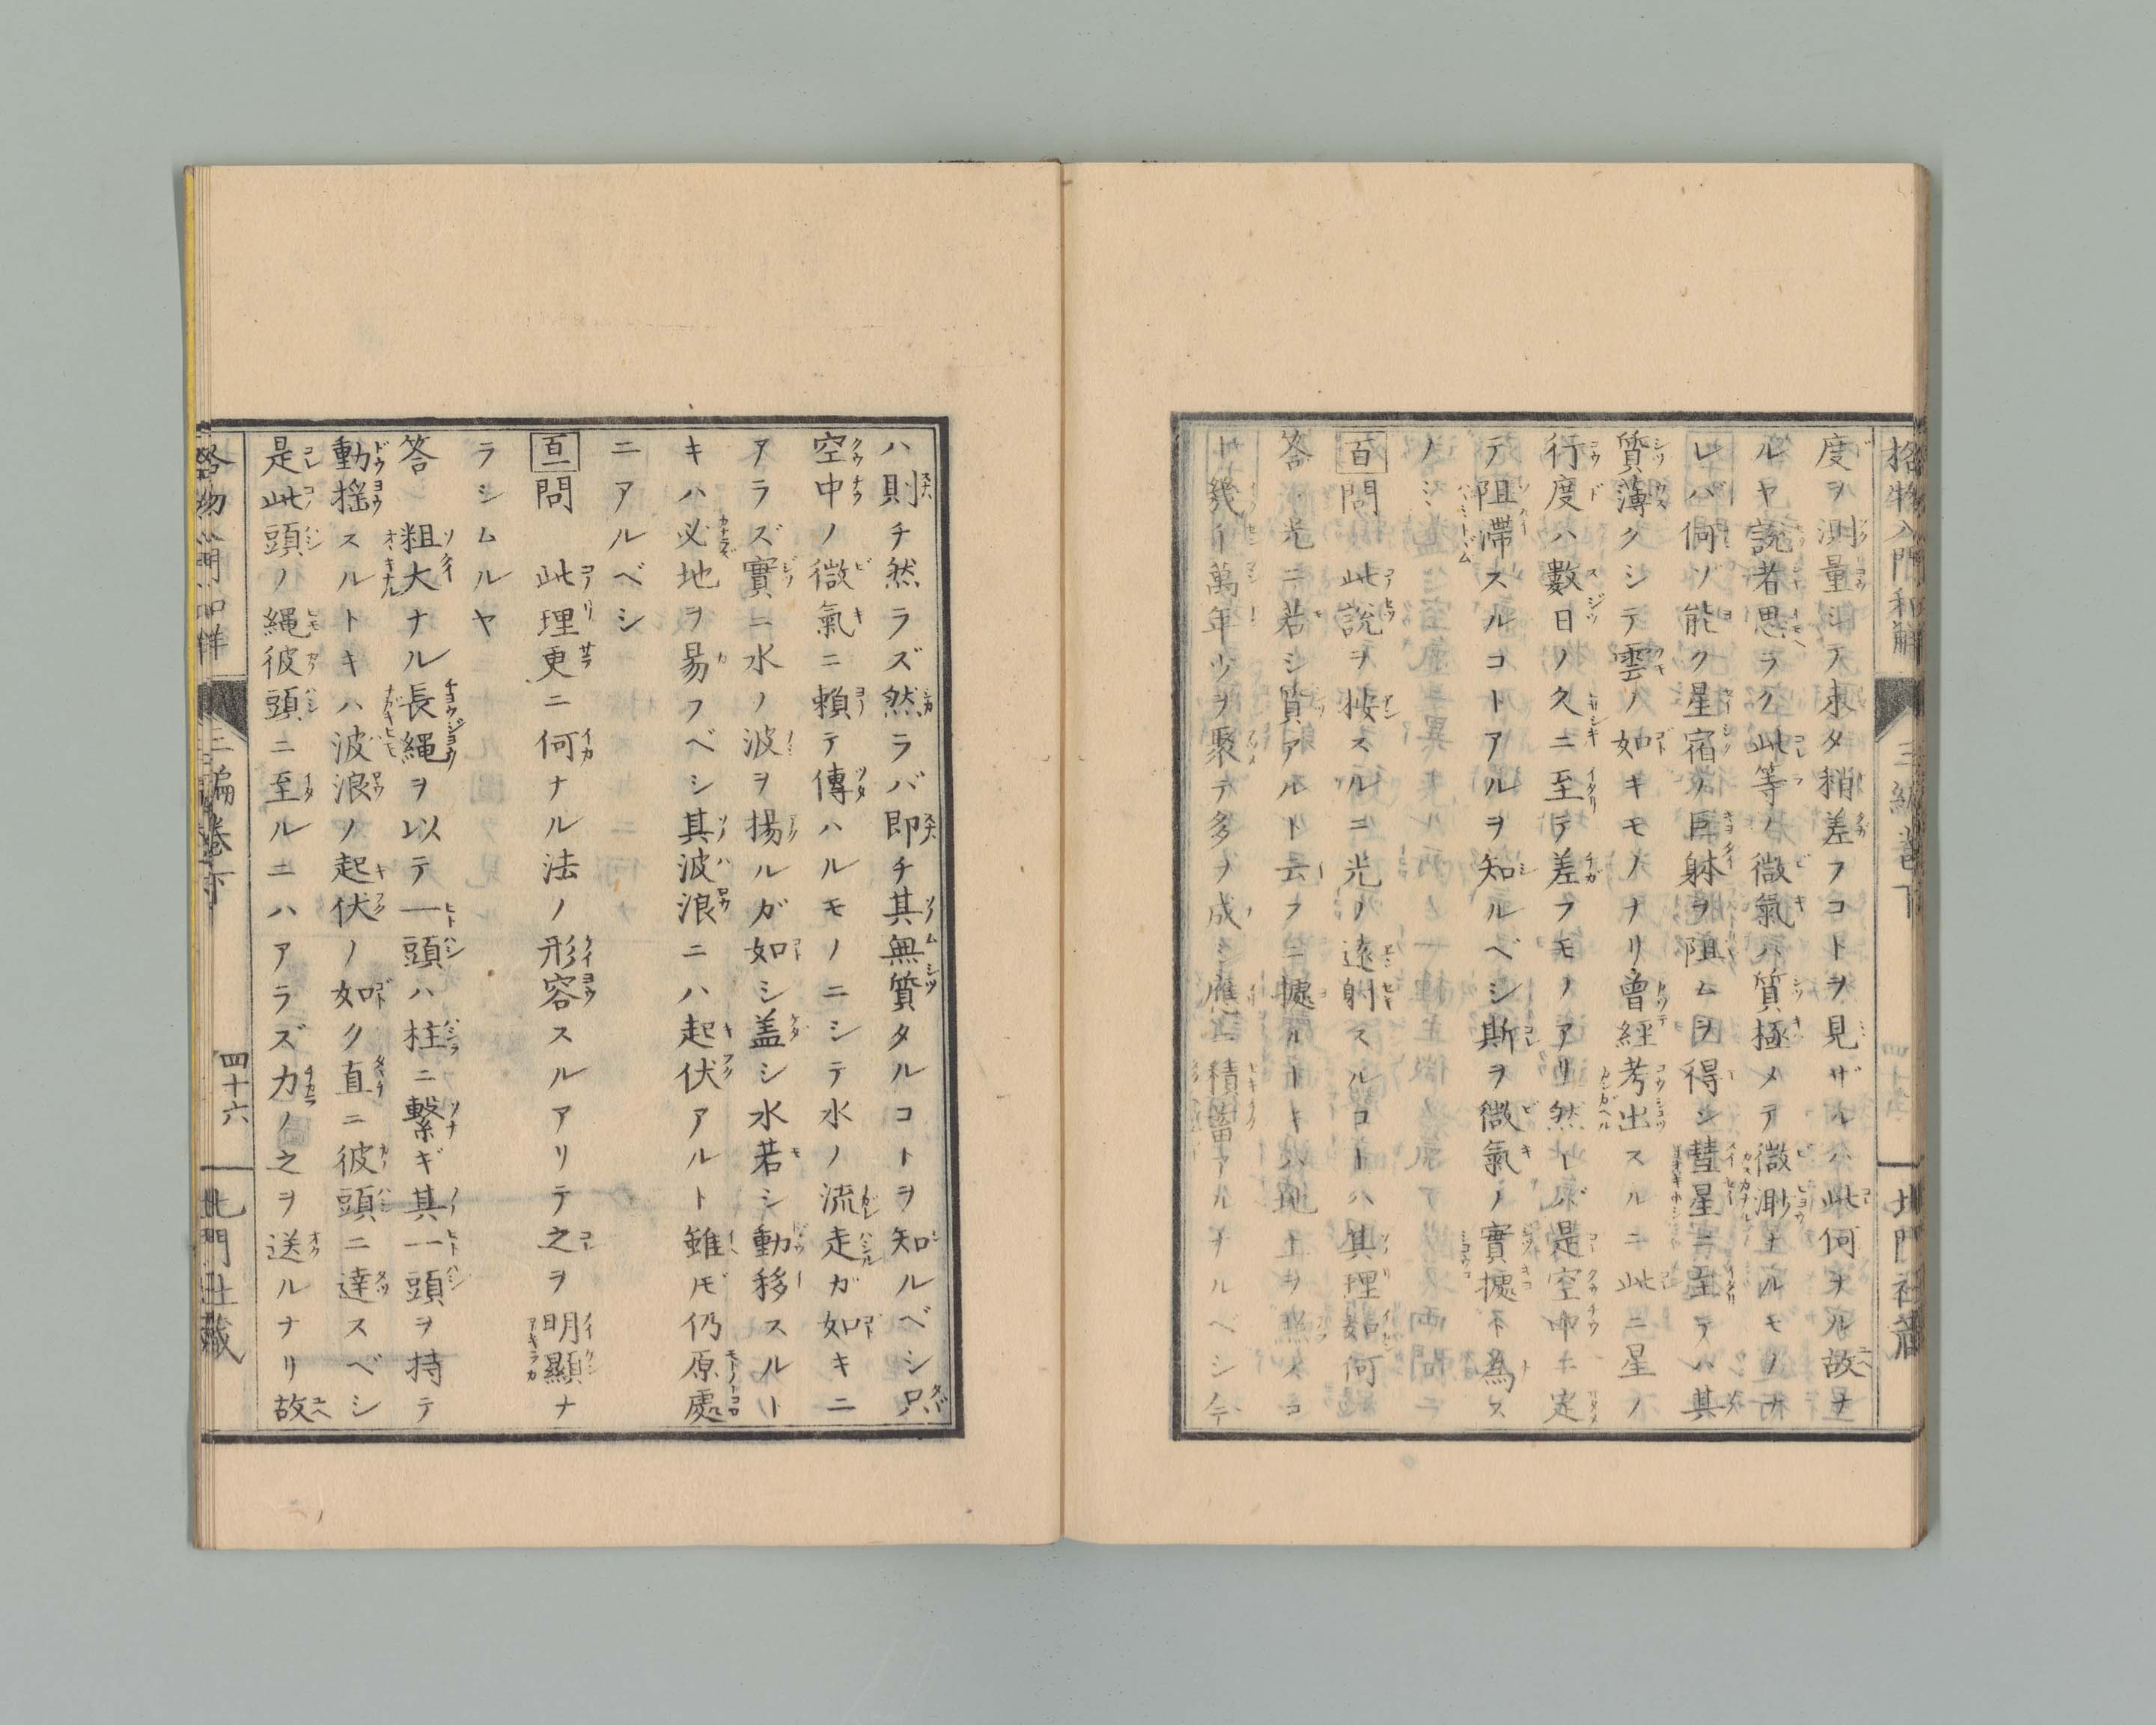 格物入門和解 三編巻下 北門社蔵
度ヲ測量シテ未タ稍差フコトヲ見ザルハ此何ナル故ナ
ルヤ説者思ラク此等ノ微氣ハ質極メテ微渺ナルモノナ
レバ何ゾ能ク星宿ノ巨躰ヲ阻ムヲ得シ彗星ニ至テハ其
質薄クシテ雲ノ如キモノナリ曽經考出スルニ此ニ星ノ
行度ハ數日ノ久ニ至テ差フモノアリ然レバ是空中ニ定
テ阻滯スルコトアルヲ知ルベシ斯ヲ微氣ノ實據ト為ス
ノミ
百問 此説ヲ按スルニ光ノ遠射スルコトハ其理如何
答 光ニ若シ質アルト云フニ據ルトキハ地上ヲ照スコ
ト幾千萬年少ヲ聚テ多ヲ成シ應ニ積畜アルナルベシ今
ハ則チ然ラズ然ラバ即チ其無質タルコトヲ知ルベシ只
空中ノ微氣ニ頼テ傳ハルモノニシテ水ノ流走ガ如キニ
アラズ實ニ水ノ波ヲ揚ルガ如シ盖シ水若シ動移スルト
キハ必地ヲ易フベシ其波浪ニハ起伏アルト雖ㇶ仍原處
ニアルベシ
百一問 此理更ニ何ナル法ノ形容スルアリテ之ヲ明顯ナ
ラシムルヤ
答 粗大ナル長繩ヲ以テ一頭ハ柱ニ繋ギ其一頭ヲ持テ
動揺スルトキハ波浪ノ起伏ノ如ク直ニ彼頭ニ達スベシ
是此頭ノ繩彼頭ニ至ルニハアラズ力ノ之ヲ送ルナリ故
格物入門和解 三編巻下 四十六 北門社藏